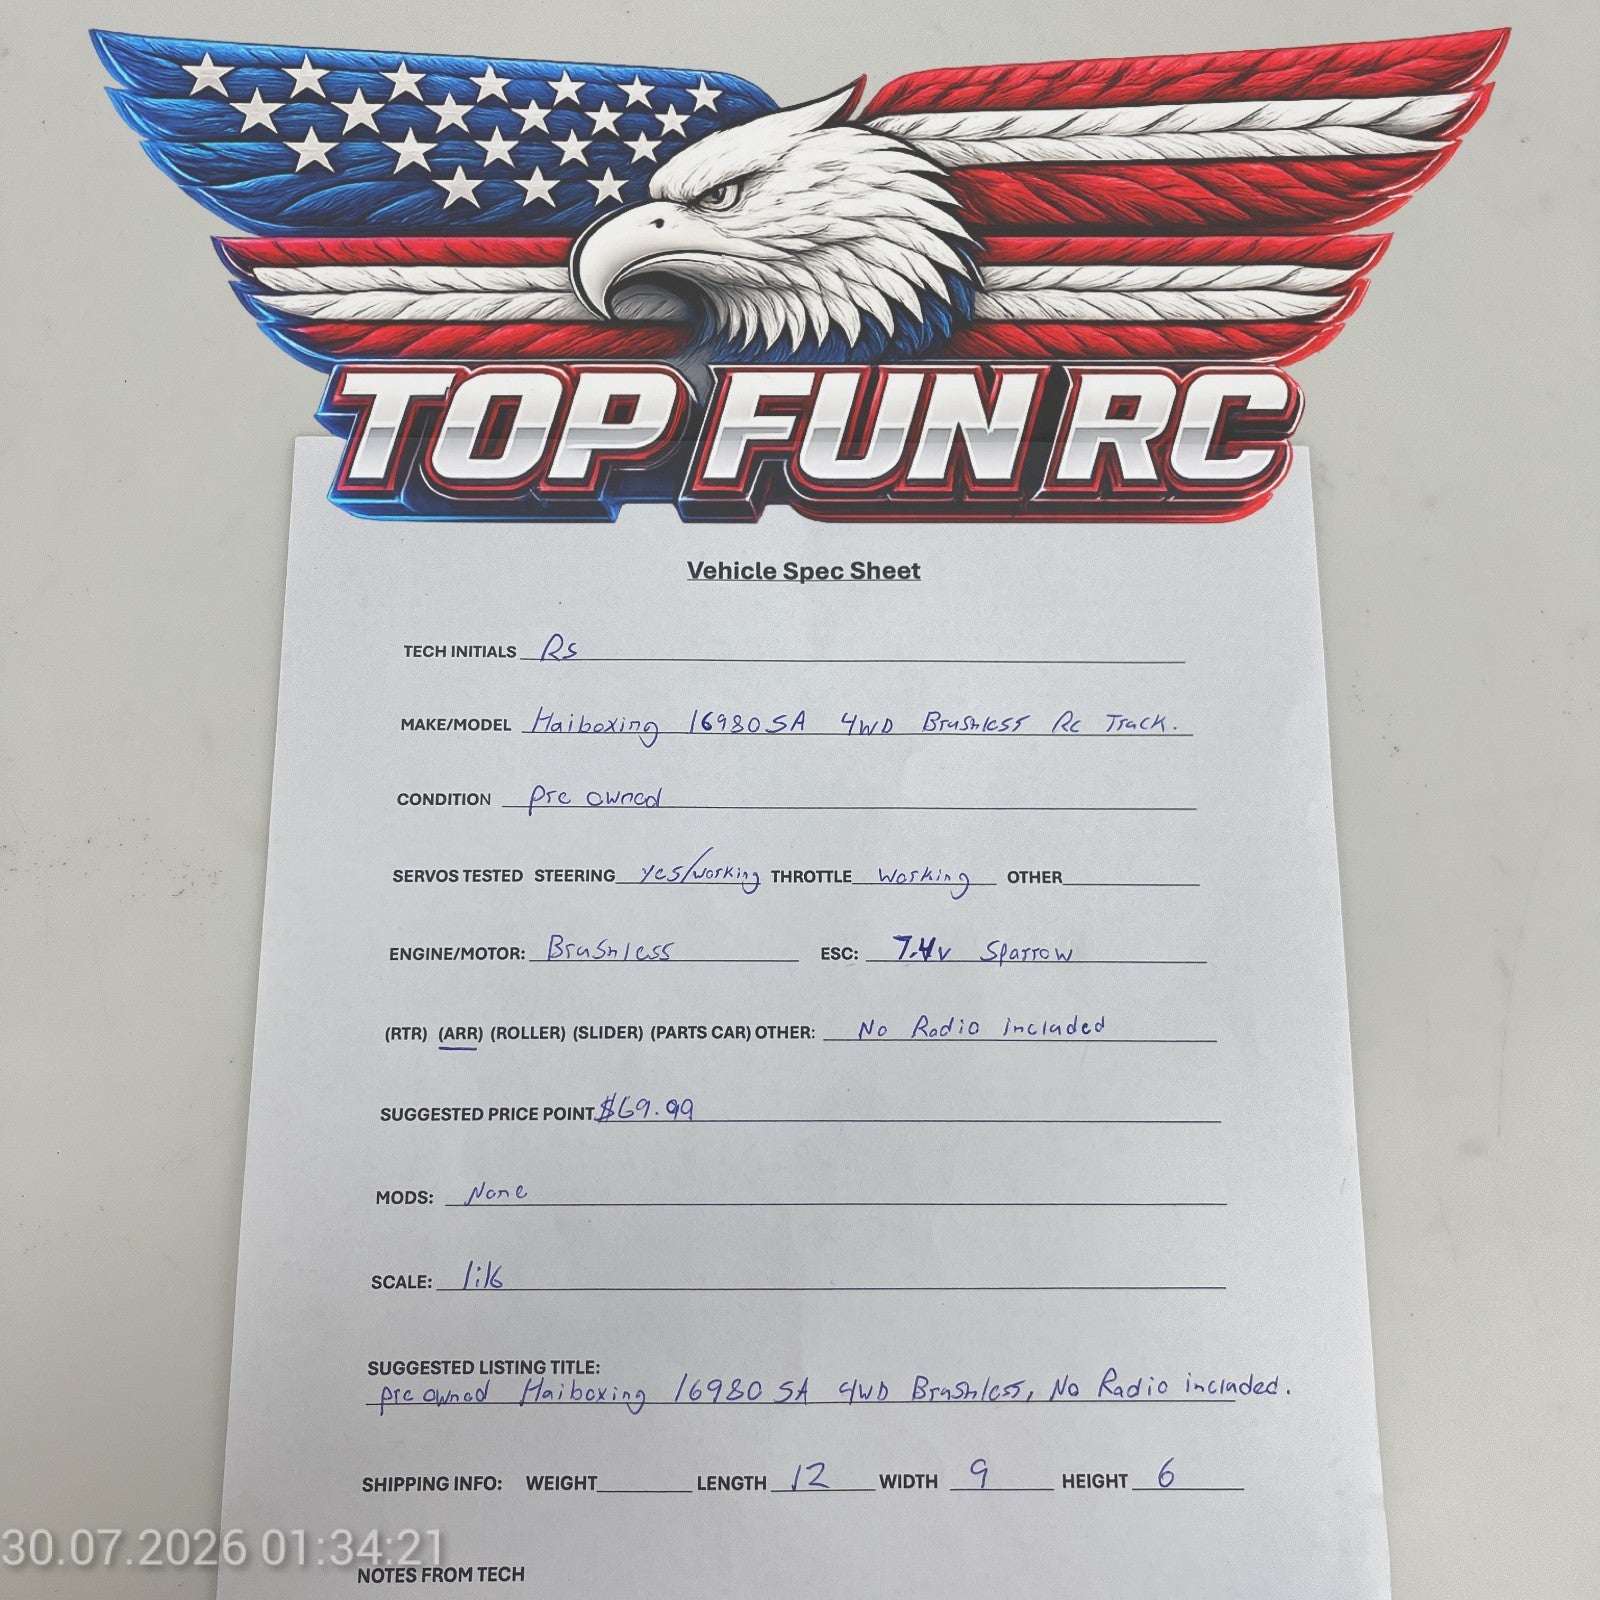 TOP FUN RC
Vehicle Spec Sheet
TECH INITIALS RS
MAKE/MODEL Haiboxing 16980SA 4WD Brushless Rc Truck.
CONDITION pre owned
SERVOS TESTED STEERING yes/working THROTTLE Working OTHER
ENGINE/MOTOR: Brushless ESC: 7.4v Sparrow
(RTR) (ARR) (ROLLER) (SLIDER) (PARTS CAR) OTHER: No Radio included
SUGGESTED PRICE POINT $69.99
MODS: None
SCALE: 1:16
SUGGESTED LISTING TITLE:
pre owned Haiboxing 16980 SA 4WD Brushless, No Radio included.
SHIPPING INFO: WEIGHT LENGTH 12 WIDTH 9 HEIGHT 6
30.07.2026 01:34:21
NOTES FROM TECH